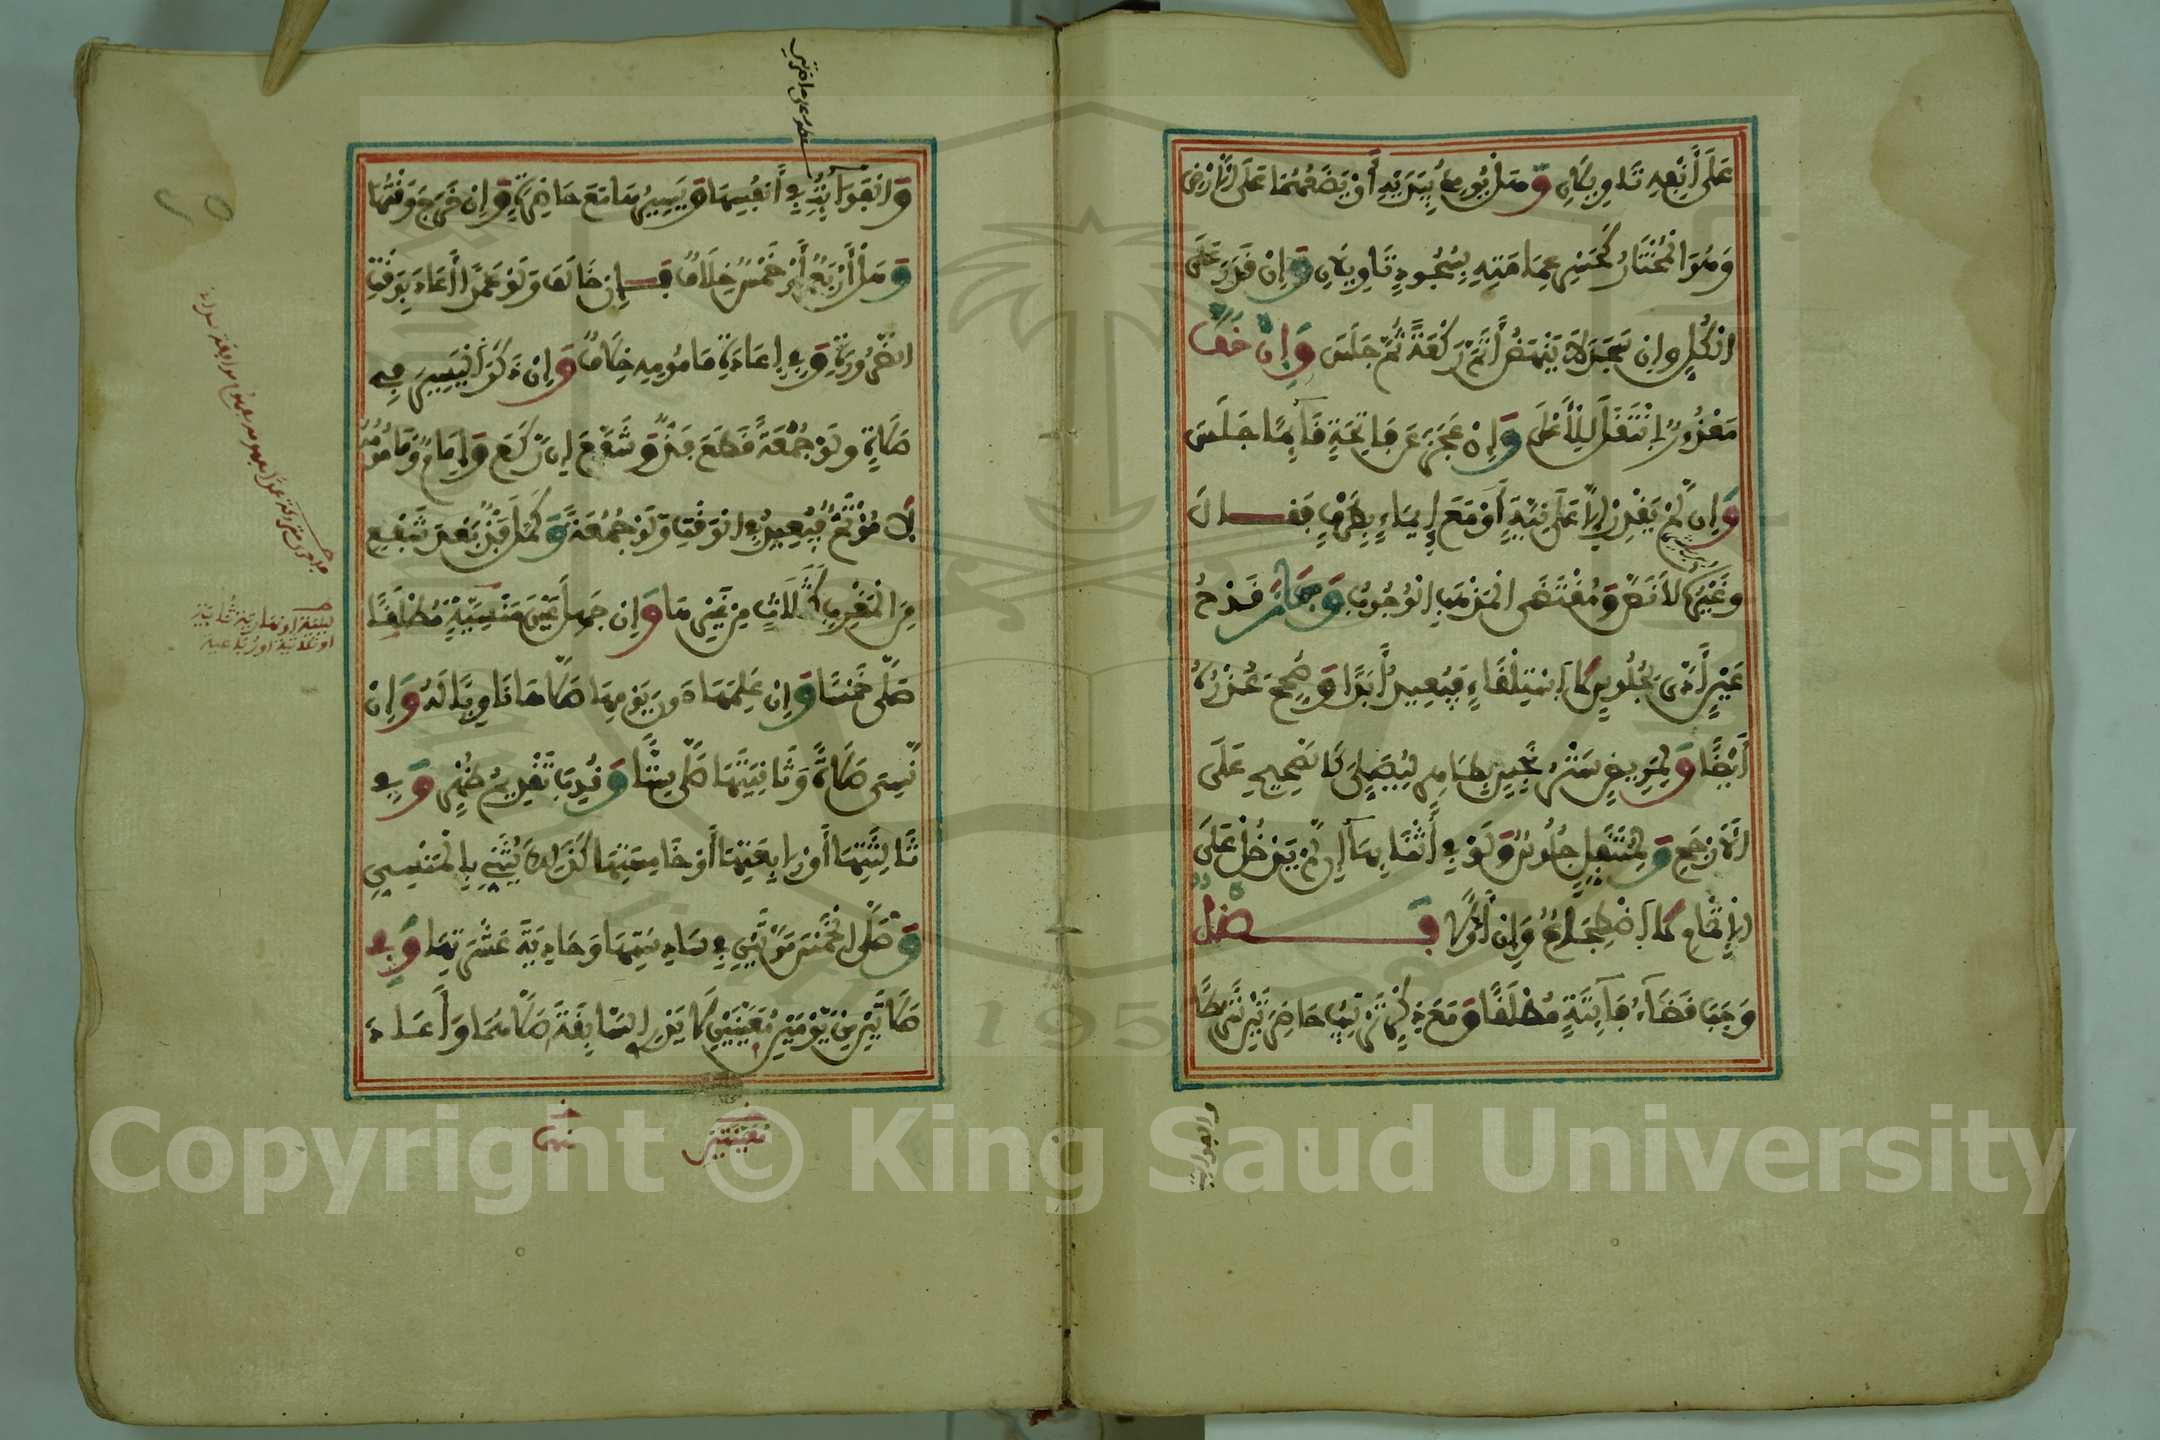 على أنفه تاويلان وهل يومئ بيديه أو يضعهما على الأرض
وهو المختار كحسر عمامته بسجود تاويلان وإن قدر على
الكل وإن سجد لا ينهض أتم ركعة ثم جلس وإن خف
معذور انتقل للأعلى وإن عجز عن فاتحة قائما جلس
وإن لم يقدر إلا على نية أو مع إيماء بطرف فقال
وغيره لا نص ومقتضى المذهب الوجوب وجاز قدح
عين أدى لجلوس لا استلقاء فيعيد أبدا وصحح عذره
أيضا ولمريض ستر نجس بطاهر ليصلي كالصحيح على
الأرجح ولمتنفل جلوس ولو في أثنائها إن لم يدخل على
الإتمام لا اضطجاع وإن أولا فصل
وجب قضاء فائتة مطلقا ومع ذكر ترتيب حاضرتين شرطا
والفوائت في أنفسها ويسيرها مع حاضرة وإن خرج وقتها
وهل أربع أو خمس خلاف فإن خالف ولو عمدا أعاد بوقت
الضرورة وفي إعادة مامومه خلاف وإن ذكر اليسير في
صلاة ولو جمعة قطع فذ وشفع إن ركع وإمام ومامومه
لا مؤتم فيعيد في الوقت ولو جمعة وكمل فذ بعد شفع
من المغرب كثلاث من غيرها وإن جهل عين منسية مطلقا
صلى خمسا وإن علمها دون يومها صلاها ناويا له وإن
نسي صلاة وثانيتها صلى ستا وندب تقديم ظهر وفي
ثالثتها أو رابعتها أو خامستها كذلك يثني بالمنسي
وصلى الخمس مرتين في سادستها وحادية عشرتها وفي
صلاتين من يومين معينين لا يدري السابقة صلاهما وأعاد
ليلية او نهارية ثنائية
او ثلاثية او رباعية
معينتين
Copyright © King Saud University
1957